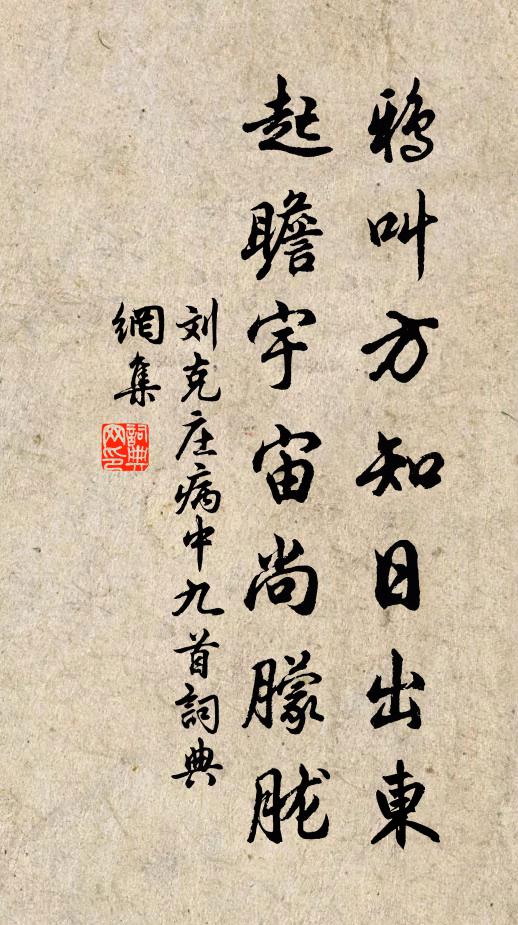 鴉叫方知日出東
起瞻宇宙尚朦朧
刘克庄病中九首詞典
網集
詞典
网印